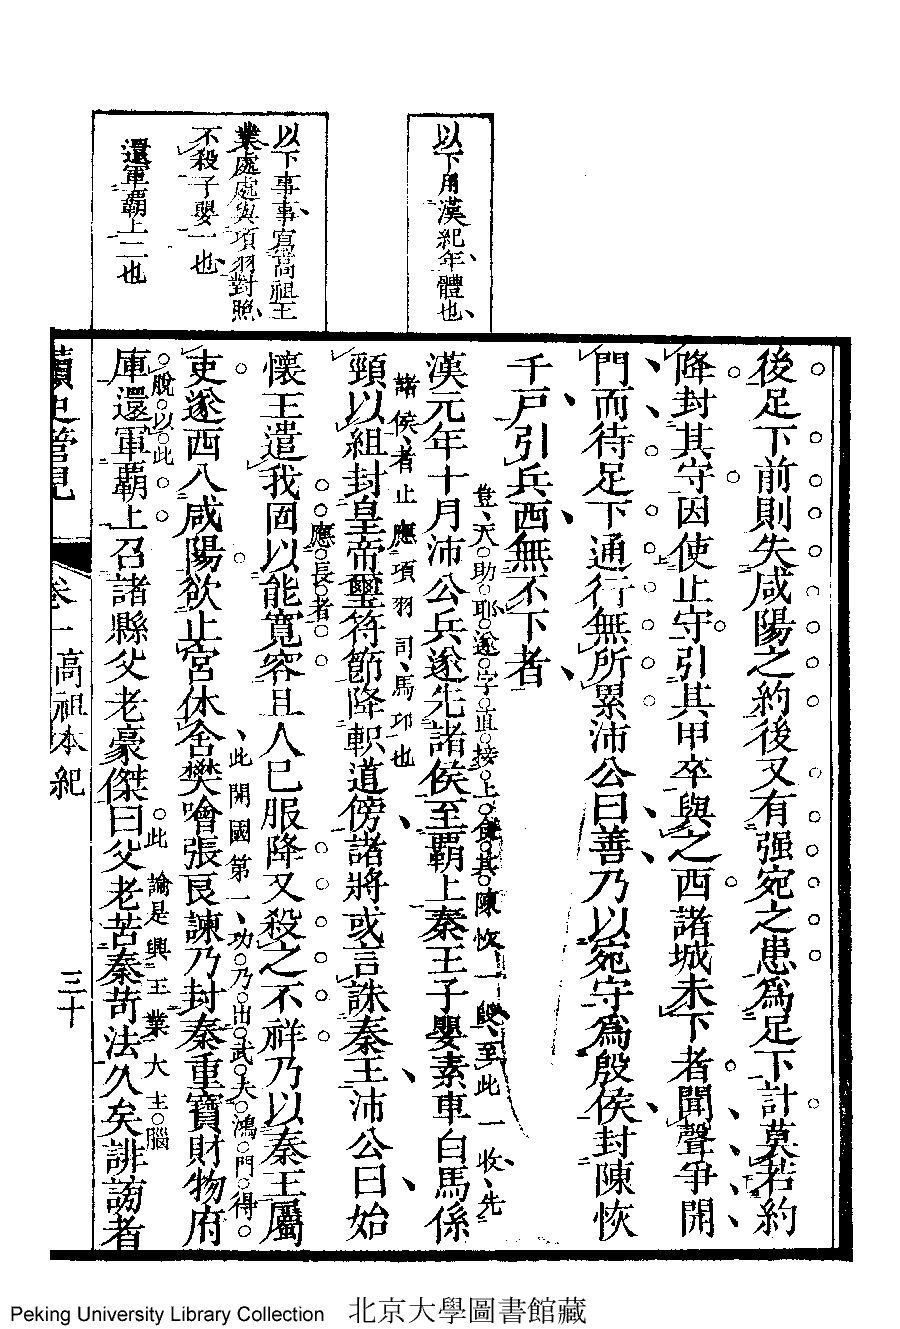 以下用漢紀年體也
以下事事寫高祖王
業處處與項羽對照
不殺子嬰一也
還軍霸上二也
後足下前則失咸陽之約後又有强宛之患爲足下計莫若約
降封其守因使止守引其甲卒與之西諸城未下者聞聲爭開
門而待足下通行無所累沛公曰善乃以宛守爲殷侯封陳恢
千戶引兵西無不下者
登天助耶遂字直接上
其陳恢一段至此一收先
漢元年十月沛公兵遂先諸侯至霸上秦王子嬰素車白馬係
諸侯者止應項羽司馬卬也
頸以組封皇帝璽符節降軹道傍諸將或言誅秦王沛公曰始
應長者
懷王遣我固以能寬容且人已服降又殺之不祥乃以秦王屬
此開國第一功乃出武夫鴻門得
吏遂西入咸陽欲止宮休舍樊噲張良諫乃封秦重寶財物府
脫以此
此論是興王業大主腦
庫還軍霸上召諸縣父老豪傑曰父老苦秦苛法久矣誹謗者
讀史管見
卷一高祖本紀
三十
Peking University Library Collection 北京大學圖書館藏